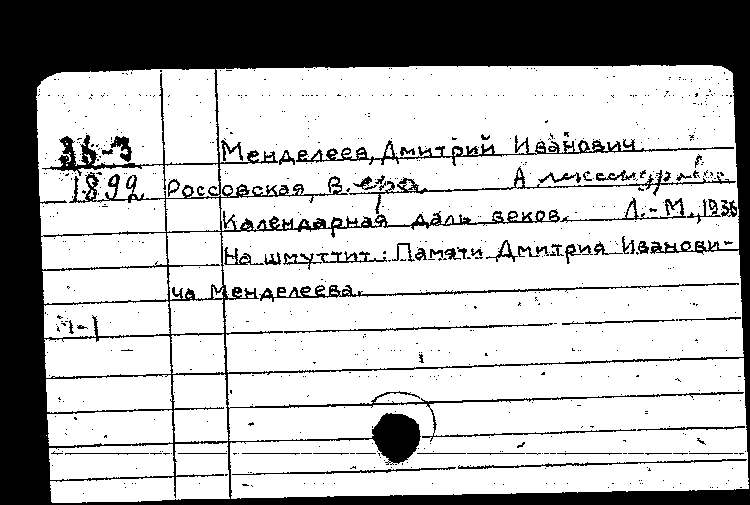 36-3
Менделеев, Дмитрий Иванович
1892 Россовская, Вера Александровна
Календарная даль веков. Л.-М., 1936
На шмуттит.: Памяти Дмитрия Иванови-
ча Менделеева.
М-1